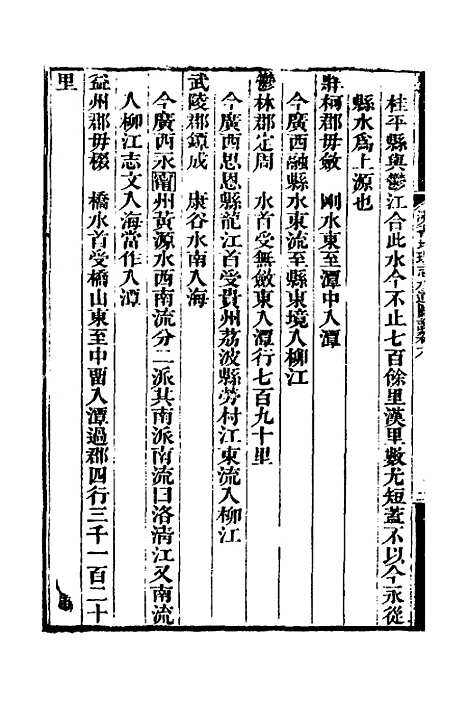 桂平縣與鬱江合此水今不止七百餘里漢里數尤短蓋不以今永從
縣水爲上源也
牂柯郡毋斂　剛水東至潭中入潭
今廣西融縣水東流至縣東境入柳江
鬱林郡定周　水首受無斂東入潭行七百九十里
今廣西思恩縣龍江首受貴州荔波縣勞村江東流入柳江
武陵郡鐔成　康谷水南入海
今廣西永甯州黃源水西南流分二派其南派南流曰洛清江又南流
入柳江志文入海當作入潭
益州郡毋棳　橋水首受橋山東至中留入潭過郡四行三千一百二十
里